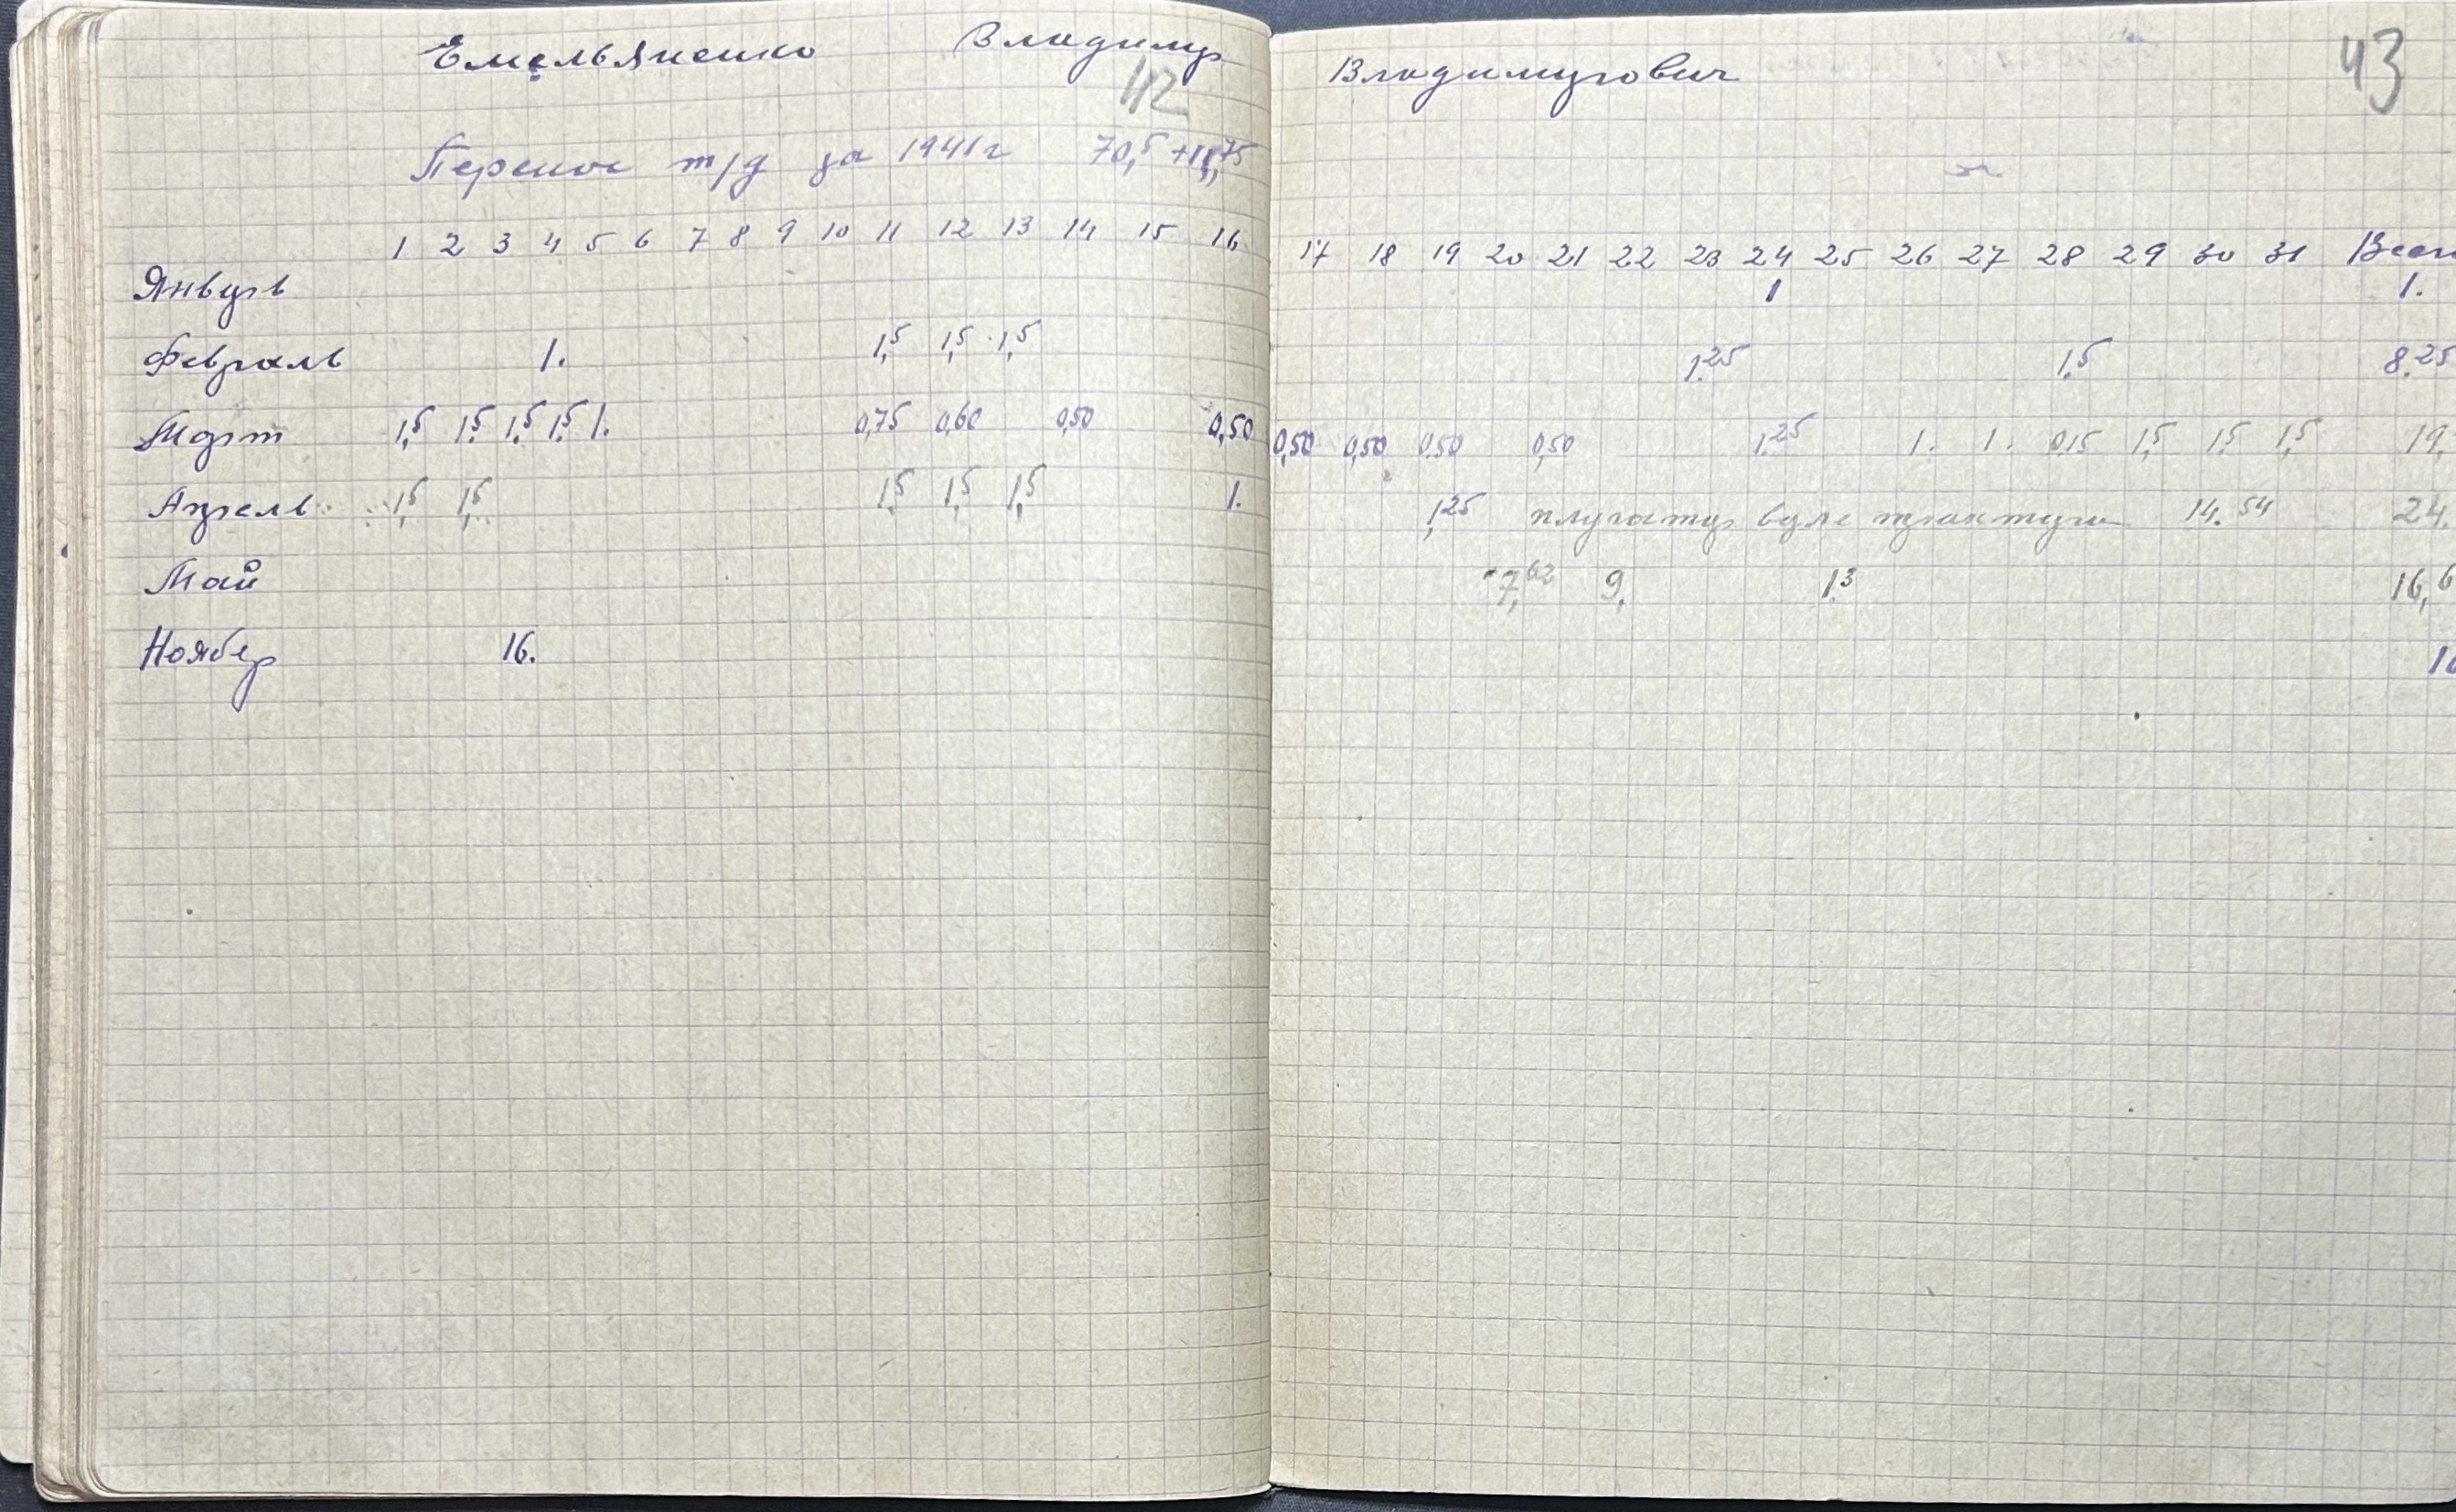 Емельяненко Владимир Владимирович 43
42
Перенос т/д за 1941г 70,5 +11,75
1 2 3 4 5 6 7 8 9 10 11 12 13 14 15 16 17 18 19 20 21 22 23 24 25 26 27 28 29 30 31 Всего
Январь 1 1.
Февраль 1. 1,5 1,5 1,5 1.25 1,5 8.25
Март 1,5 1,5 1,5 1,5 1. 0,75 0,60 0,50 0,50 0,50 0,50 0,50 0,50 1.25 1. 1. 0,15 1,5 1,5 1,5 19,
Апрель 1,5 1,5 1,5 1,5 1,5 1. 1,25 14.54 24.
Май 7,62 9, 1.3 16,6
Ноябер 16. 16